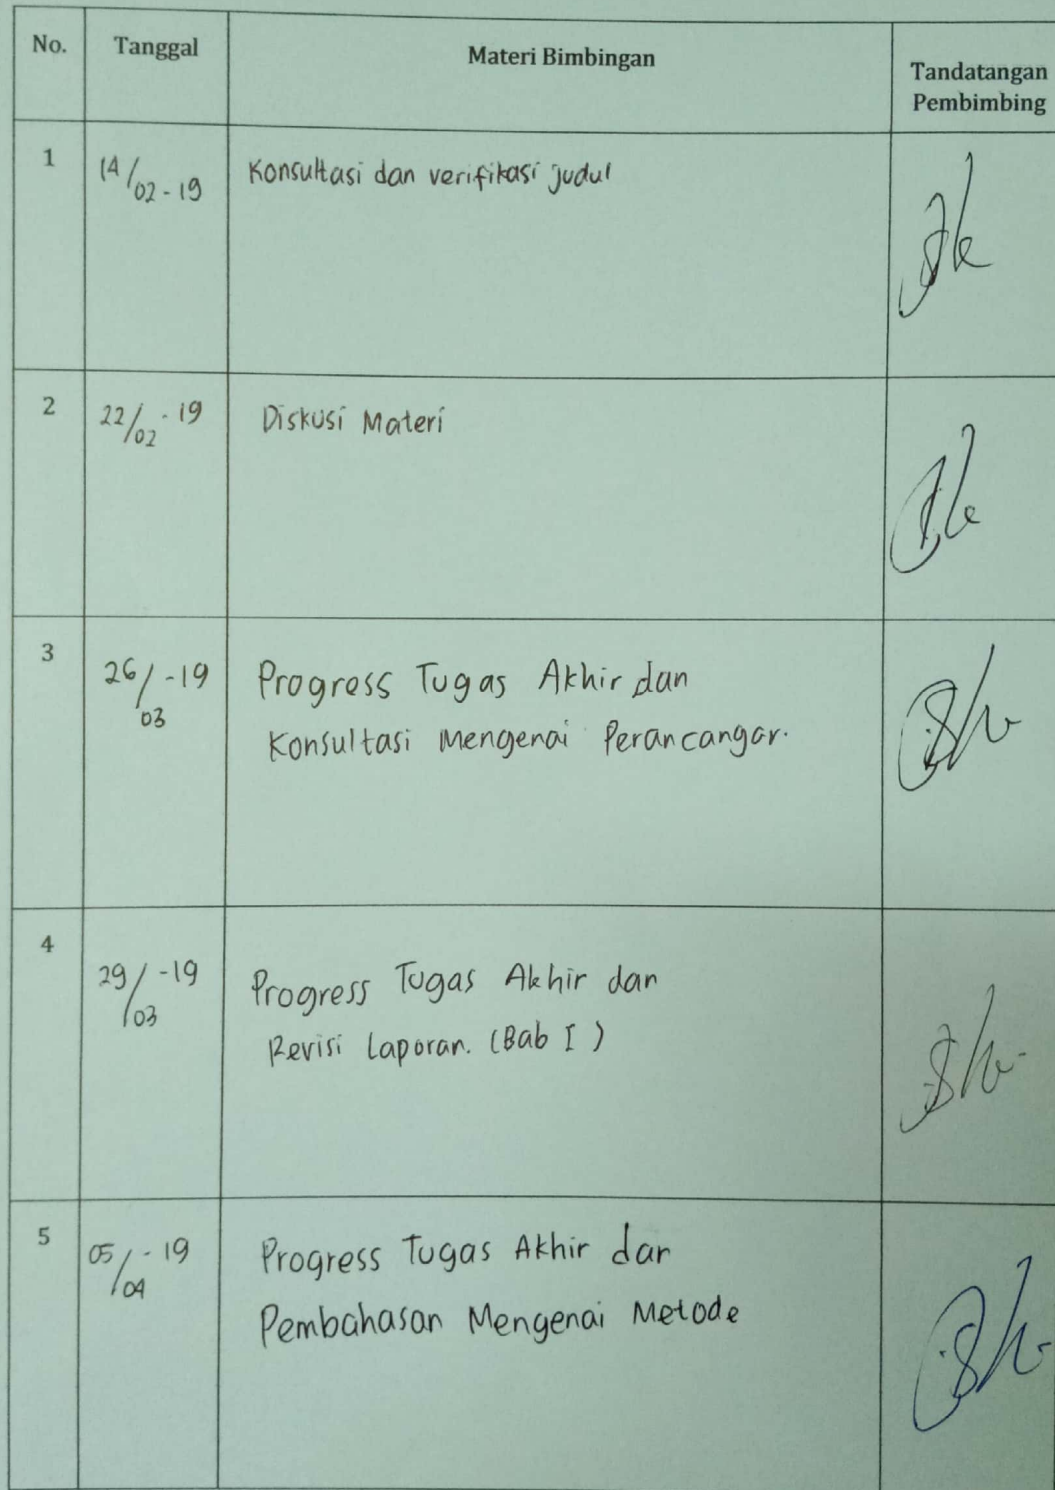 No. Tanggal Materi Bimbingan Tandatangan
Pembimbing
1 14/02-19 Konsultasi dan verifikasi judul
2 22/02-19 Diskusi Materi
3 26/03-19 Progress Tugas Akhir dan
Konsultasi Mengenai Perancangan.
4 29/03-19 Progress Tugas Akhir dan
Revisi Laporan. (Bab I)
5 05/04-19 Progress Tugas Akhir dan
Pembahasan Mengenai Metode